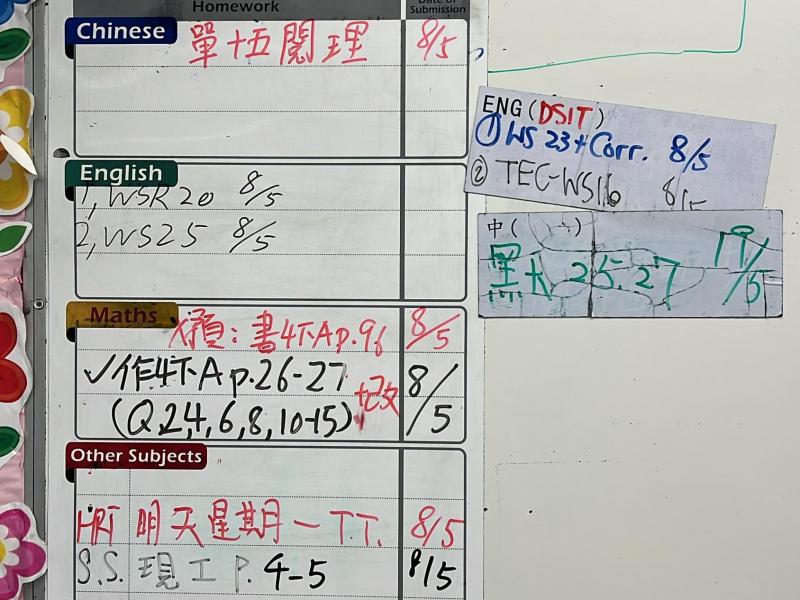 Homework
Date of Submission
Chinese
單十五閱理 8/5
English
1, WSR20 8/5
2, WS25 8/5
Maths
預:書4下A p.96 8/5
✓作4下A p.26-27 8/5
(Q.2,4,6,8,10-15)+改
Other Subjects
HRT 明天星期一T.T. 8/5
S.S. 現工 P. 4-5 8/5
ENG (DSIT)
① WS 23+Corr. 8/5
② TEC-WS16 8/5
中(
25.27